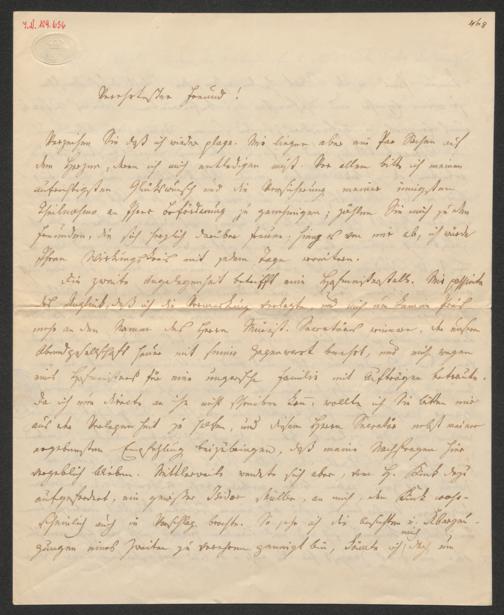 I.N. 119.636
468
Verehrtester Freund!
Verzeihen Sie daß ich wieder plage. Mir liegen aber ein Par Sachen auf
dem Herzen, deren ich mich entledigen muß. Vor allem bitte ich meinen
aufrichtigsten Glückwunsch und die Versicherung meiner innigsten
Theilnahme an Ihrer Beförderung zu genehmigen; zählen Sie mich zu den
Freunden, die sich herzlich darüber freuen. Hinge es von mir ab, ich würde
Ihren Wirkungskreis mit jedem Tage erweitern.
Die zweite Angelegenheit betrifft eine Hofmeisterstelle. Mir passirte
das Unglück, daß ich die verlegte und mich um keinen Preis
mehr an den Namen des Herrn Minist. Secretärs erinnere, der unsere
Abendgesellschaft heuer mit seiner Gegenwart beehrt, und mich wegen
eines Hofmeisters für eine ungarische Familie mit Aufträgen betraute.
Da ich nun directe an ihn nicht schreiben kann, wollte ich Sie bitten mir
aus der Verlegenheit zu helfen, und diesem Herrn Secretär nebst meiner
ergebensten Empfehlung beizubringen, daß meine Nachfragen hier
vergeblich blieben. Mittlerweile wendete sich aber, von H. dazu
aufgefordert, ein gewisser Müller, an mich, den wahr-
scheinlich auch in Vorschlag brachte. So sehr ich die Ansichten u.
eines Zweiten zu verehren geneigt bin, könnte ich mich doch um